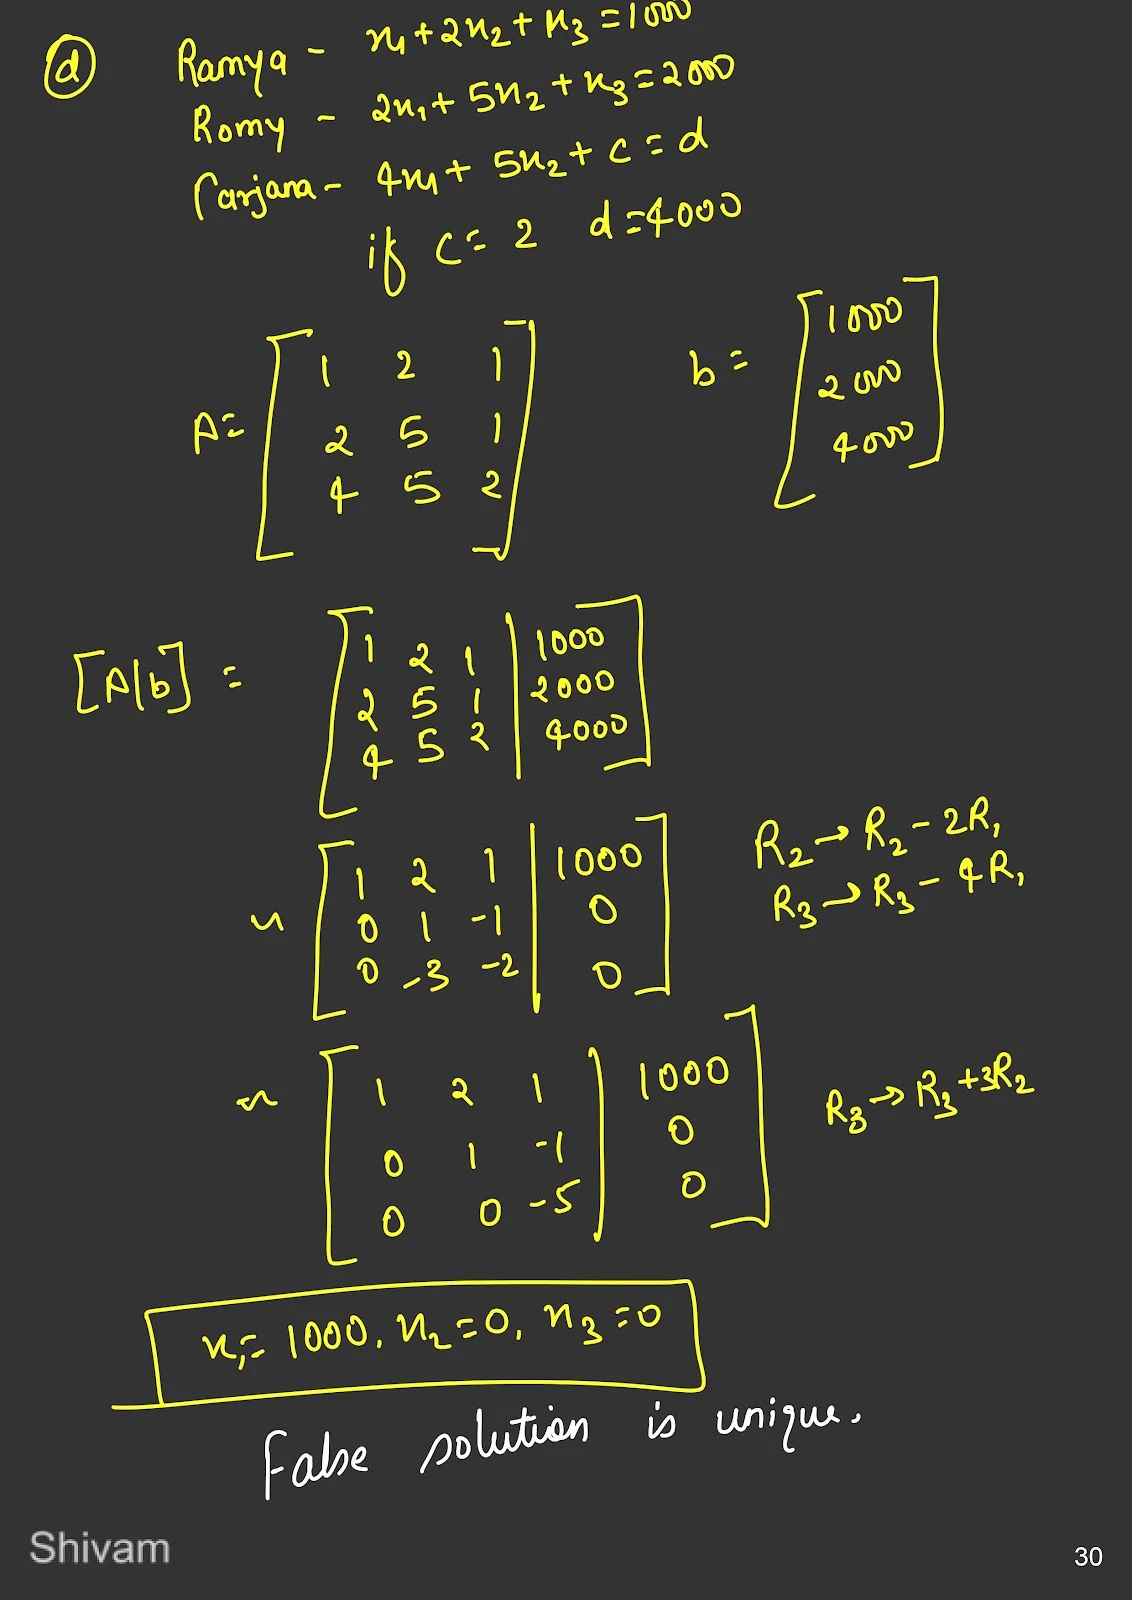 (d) Ramya - x₁+2x₂+x₃=1000
Romy - 2x₁+5x₂+x₃=2000
Farjana- 4x₁+5x₂+c=d
if c=2 d=4000
A= [1 2 1
2 5 1
4 5 2]
b= [1000
2000
4000]
[A|b] = [1 2 1 | 1000
2 5 1 | 2000
4 5 2 | 4000]
~ [1 2 1 | 1000
0 1 -1 | 0
0 -3 -2 | 0]
R₂→R₂-2R₁
R₃→R₃-4R₁
~ [1 2 1 | 1000
0 1 -1 | 0
0 0 -5 | 0]
R₃→R₃+3R₂
x₁=1000, x₂=0, x₃=0
False solution is unique.
Shivam
30